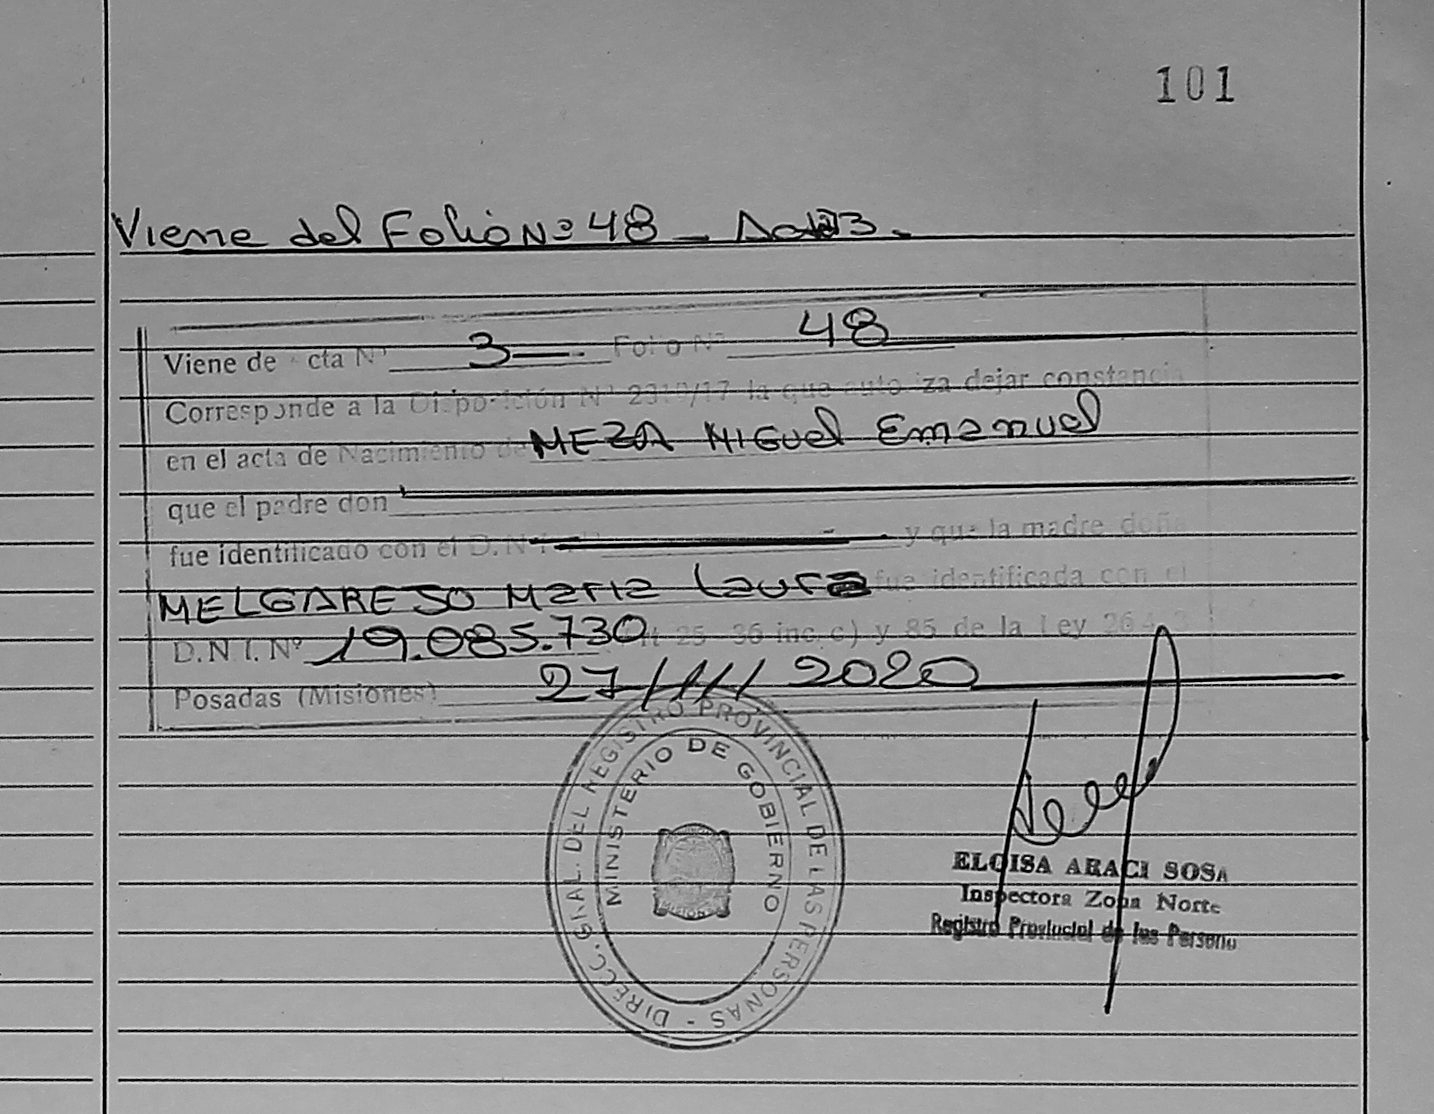 101
Viene del Folio Nº 48 - Acta 3.
Viene de cta Nº 3 Folio Nº 48
Corresponde a la Disposición Nº 2319/17 la que auto iza dejar constancia
en el acta de Nacimiento de MEZA MIGUel Emanuel
que el padre don
fue identificado con el D.N.I. y que la madre doña
MELGAREJO Maria Laura fue identificada con el
D.N.I. Nº 19.085.730 25 36 inc. c) y 85 de la Ley 264 3
Posadas (Misiones) 27/11/2020
DIRECC. GRAL. DEL REGISTRO PROVINCIAL DE LAS PERSONAS -
MINISTERIO DE GOBIERNO
ELOISA ARACI SOSA
Inspectora Zona Norte
Registro Provincial de las Persona